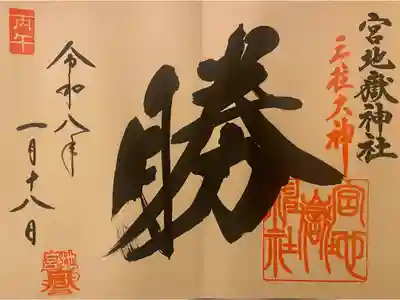 宮地嶽神社
三柱大神
宮地
嶽
神社
勝
丙午
令和八年
一月十八日
宮地嶽